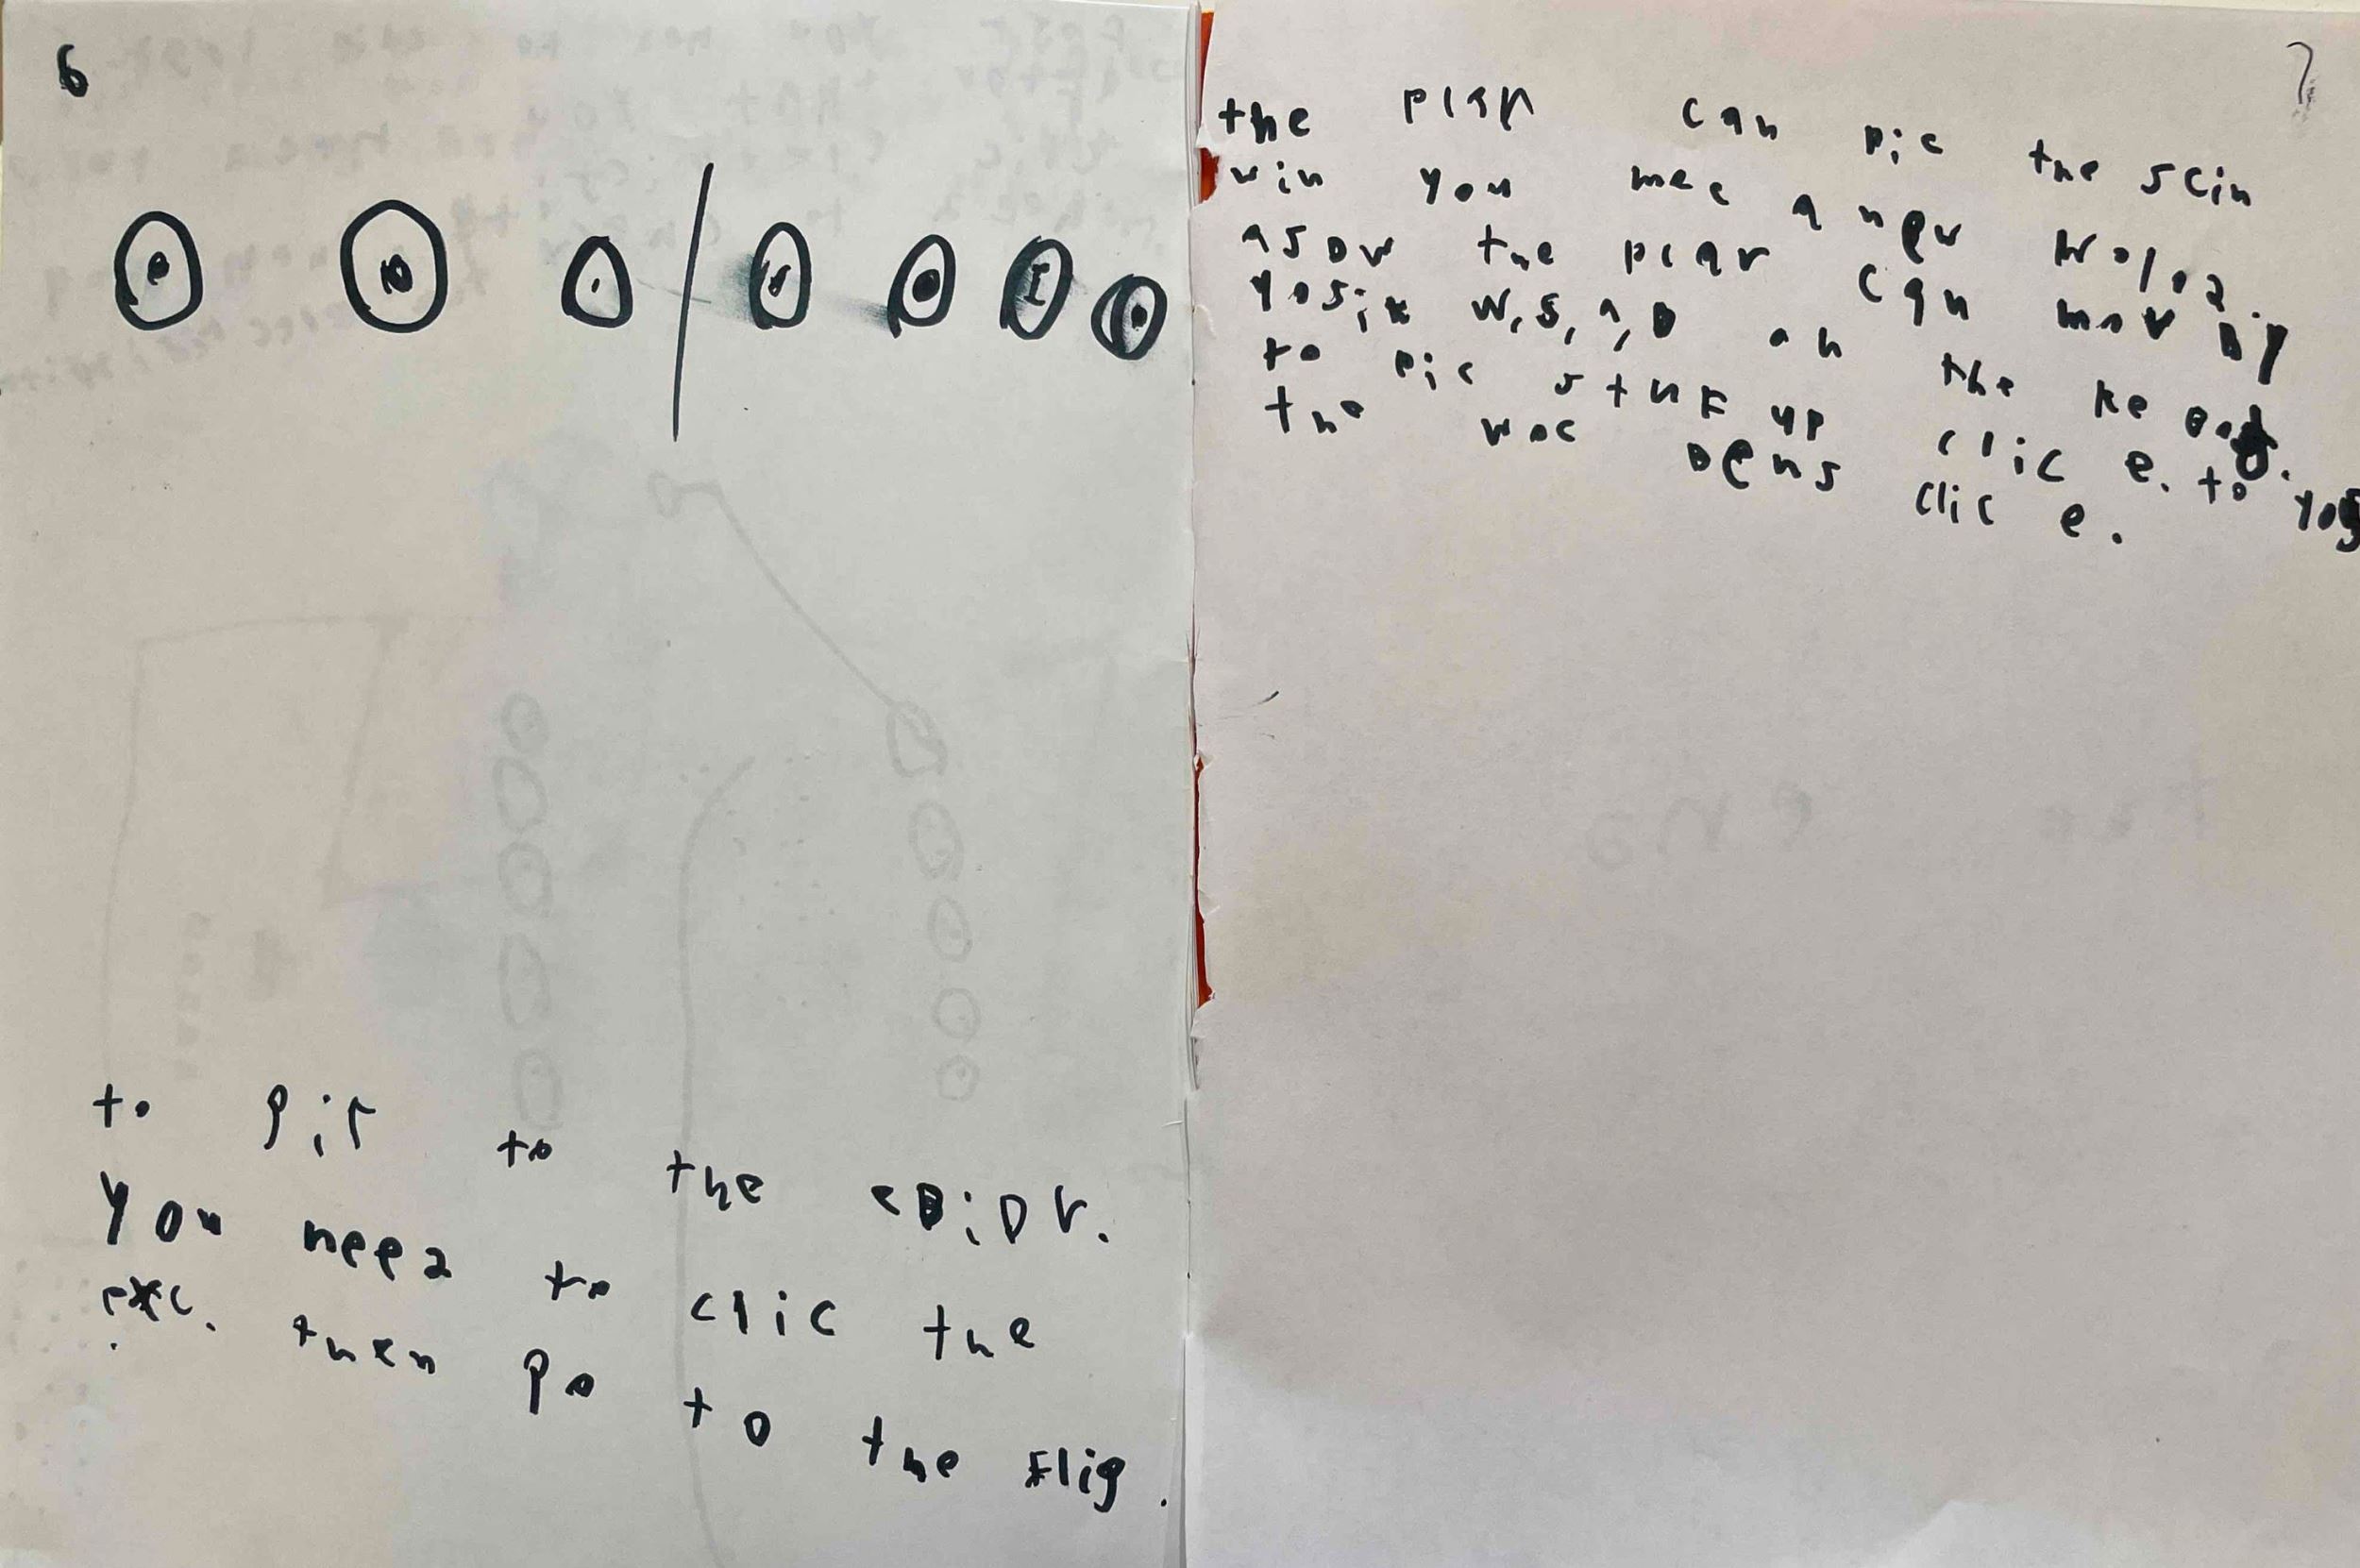 6
to git to the eDiDr.
you need to clic the
exc. then go to the flig.
7
the plar can pic the scin
win you mec a new world.
asow the plar can mov by
yosix w,s,a,D on the ke bord.
to pic stuf up clic e. to yos
the woc Dens clic e.